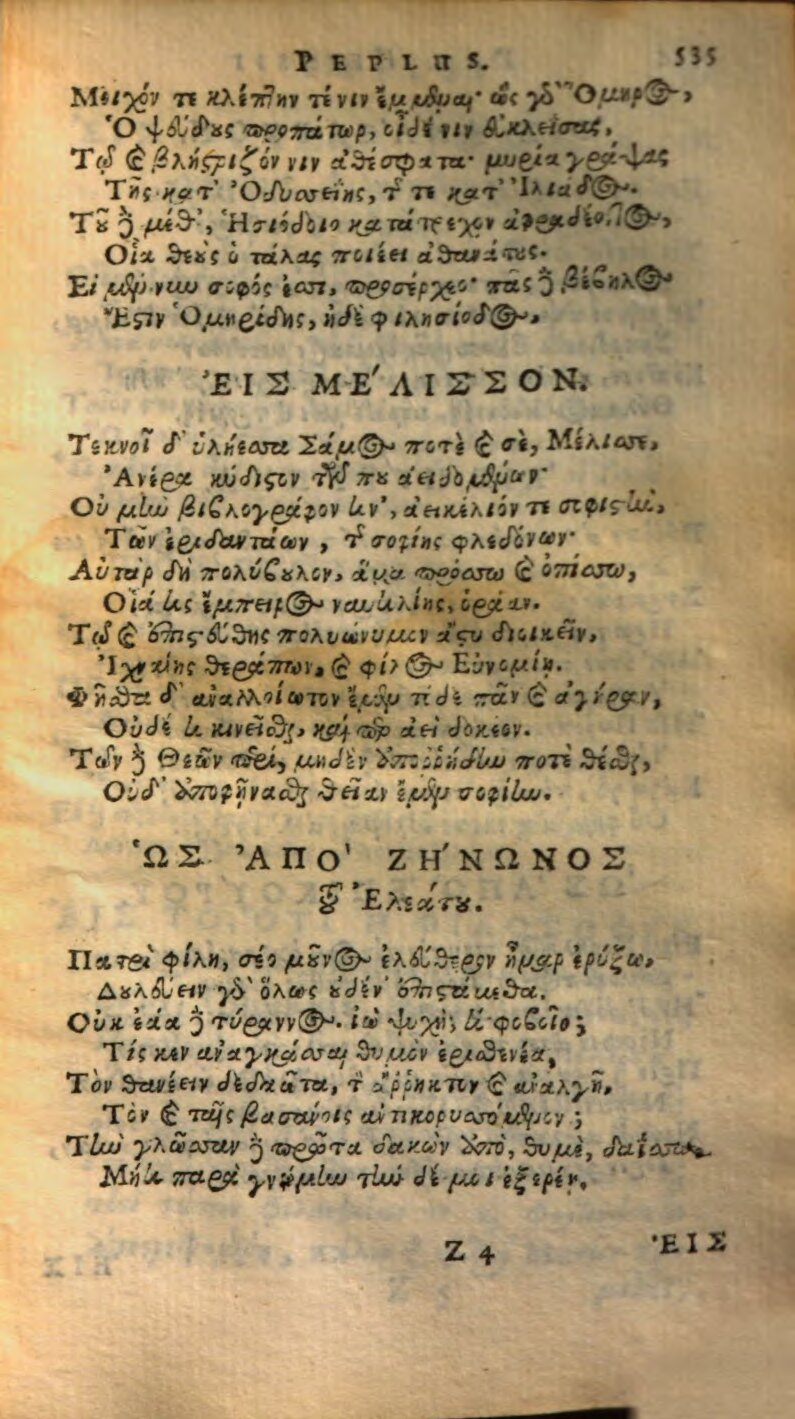 PEPLUS. 535
Μοιχόν τε κλέπτην τέ νιν ἔμμεναι· ὡς γὰρ Ὅμηρος,
Ὁ ψεύδους προπάτωρ, οἶδέ νιν εὐκλεΐσας,
Τῷ καὶ βλήστριζόν νιν ἀθέσφατα· μυρία γράψας
Τῆς κατ' Ὀδυσσείης, τῆς τε κατ' Ἰλιάδος.
Τοῦ δὲ μέθ', Ἡσιόδοιο κατάτρεχον
Οἷα θεοὺς ὁ τάλας ποιέει ἀθανάτους.
Εἰ μὲν νῦν σοφός ἐσσι, προσέρχεο· πᾶς δὲ βέβηλος
Ἔστιν Ὁμηρίδης, ἠδὲ φιλησίοδος.
ἘΙΣ ΜΕ΄ΛΙΣΣΟΝ.
Τεκνοῖ δ' ὑλήεσσα Σάμος ποτὲ καὶ σὲ, Μέλισσε,
Ἀνέρα κύδιστον τῶν που ἀειδομένων·
Οὐ μὴν βιβλογράφον κεν', ἀεικέλιόν τε σοφιστὴν,
Τῶν ἐριδανταων, τῆς σοφίης φλεδόνων·
Αὐτὰρ δὴ πολύβουλον, ἅμα πρόσσω καὶ ὀπίσσω,
Οἷά κε ἔμπειρος ναυκλίης, ὁράαν.
Τῷ καὶ ἐπιστεύθης πολυώνυμον ἄστυ διοικεῖν,
Ἰχναίης θεράπων, καὶ φίλος Εὐνομίη.
Φῆσθα δ' ἀναλλοίωτον ἔμεν τόδε πᾶν καὶ ἀγήραν,
Οὐδέ κε κινεῖσθαι, καί περ ἀεὶ δοκέον.
Τῶν δὲ Θεῶν πέρι, μηδὲν ὑπορρήδην ποτὲ θέσθαι,
Οὐδ' ὑποφῆνασθαι θεῖαν ἔμεν σοφίην.
ὩΣ ἈΠΟ' ΖΗ΄ΝΩΝΟΣ
τοῦ Ἐλεάτου.
Πατρὶ φίλη, σέο μοῦνος ἐλεύθερον ἦμαρ ἐρύξω,
Δουλεύειν γὰρ ὅλως οὐδέν' ἐπιστάμεθα.
Οὐκ ἐάα δὲ τύραννος. ἰὼ ψυχὴ, κε φοβοῖο;
Τίς κεν ἀναγκάσσαι θυμὸν ἐρισθενέα,
Τὸν θανέειν δεδαῶτα, τὸν ἄρρηκτον καὶ ἀναλγῆ,
Τὸν καὶ ταῖς βασάνοις ἀντικορυσσόμενον;
Τὴν γλῶσσαν δὲ πρῶτα δακὼν ὑπὸ, θυμὲ,
Μή κε παρὰ γνώμην τὴν δέ μοι ἐξερέῃ.
Z 4 ἘΙΣ